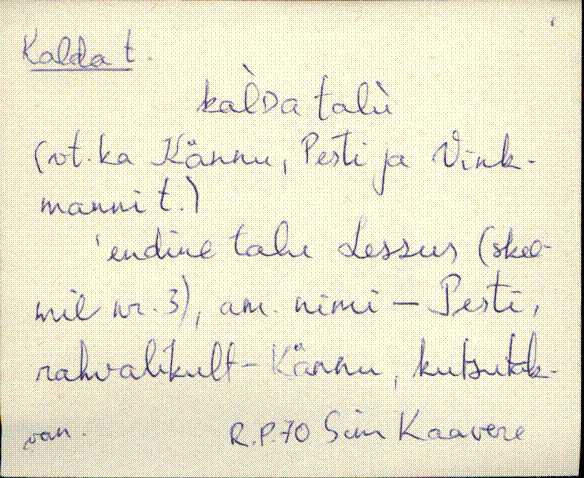 Kalda t.
kàlDa talù
(vt. ka Kännu, Pesti ja Vink-
manni t.)
'endine talu Lessus (skee-
mil nr. 3), am. nimi — Pesti,
rahvalikult - Kännu,
van. R.P. 70 Siim Kaavere